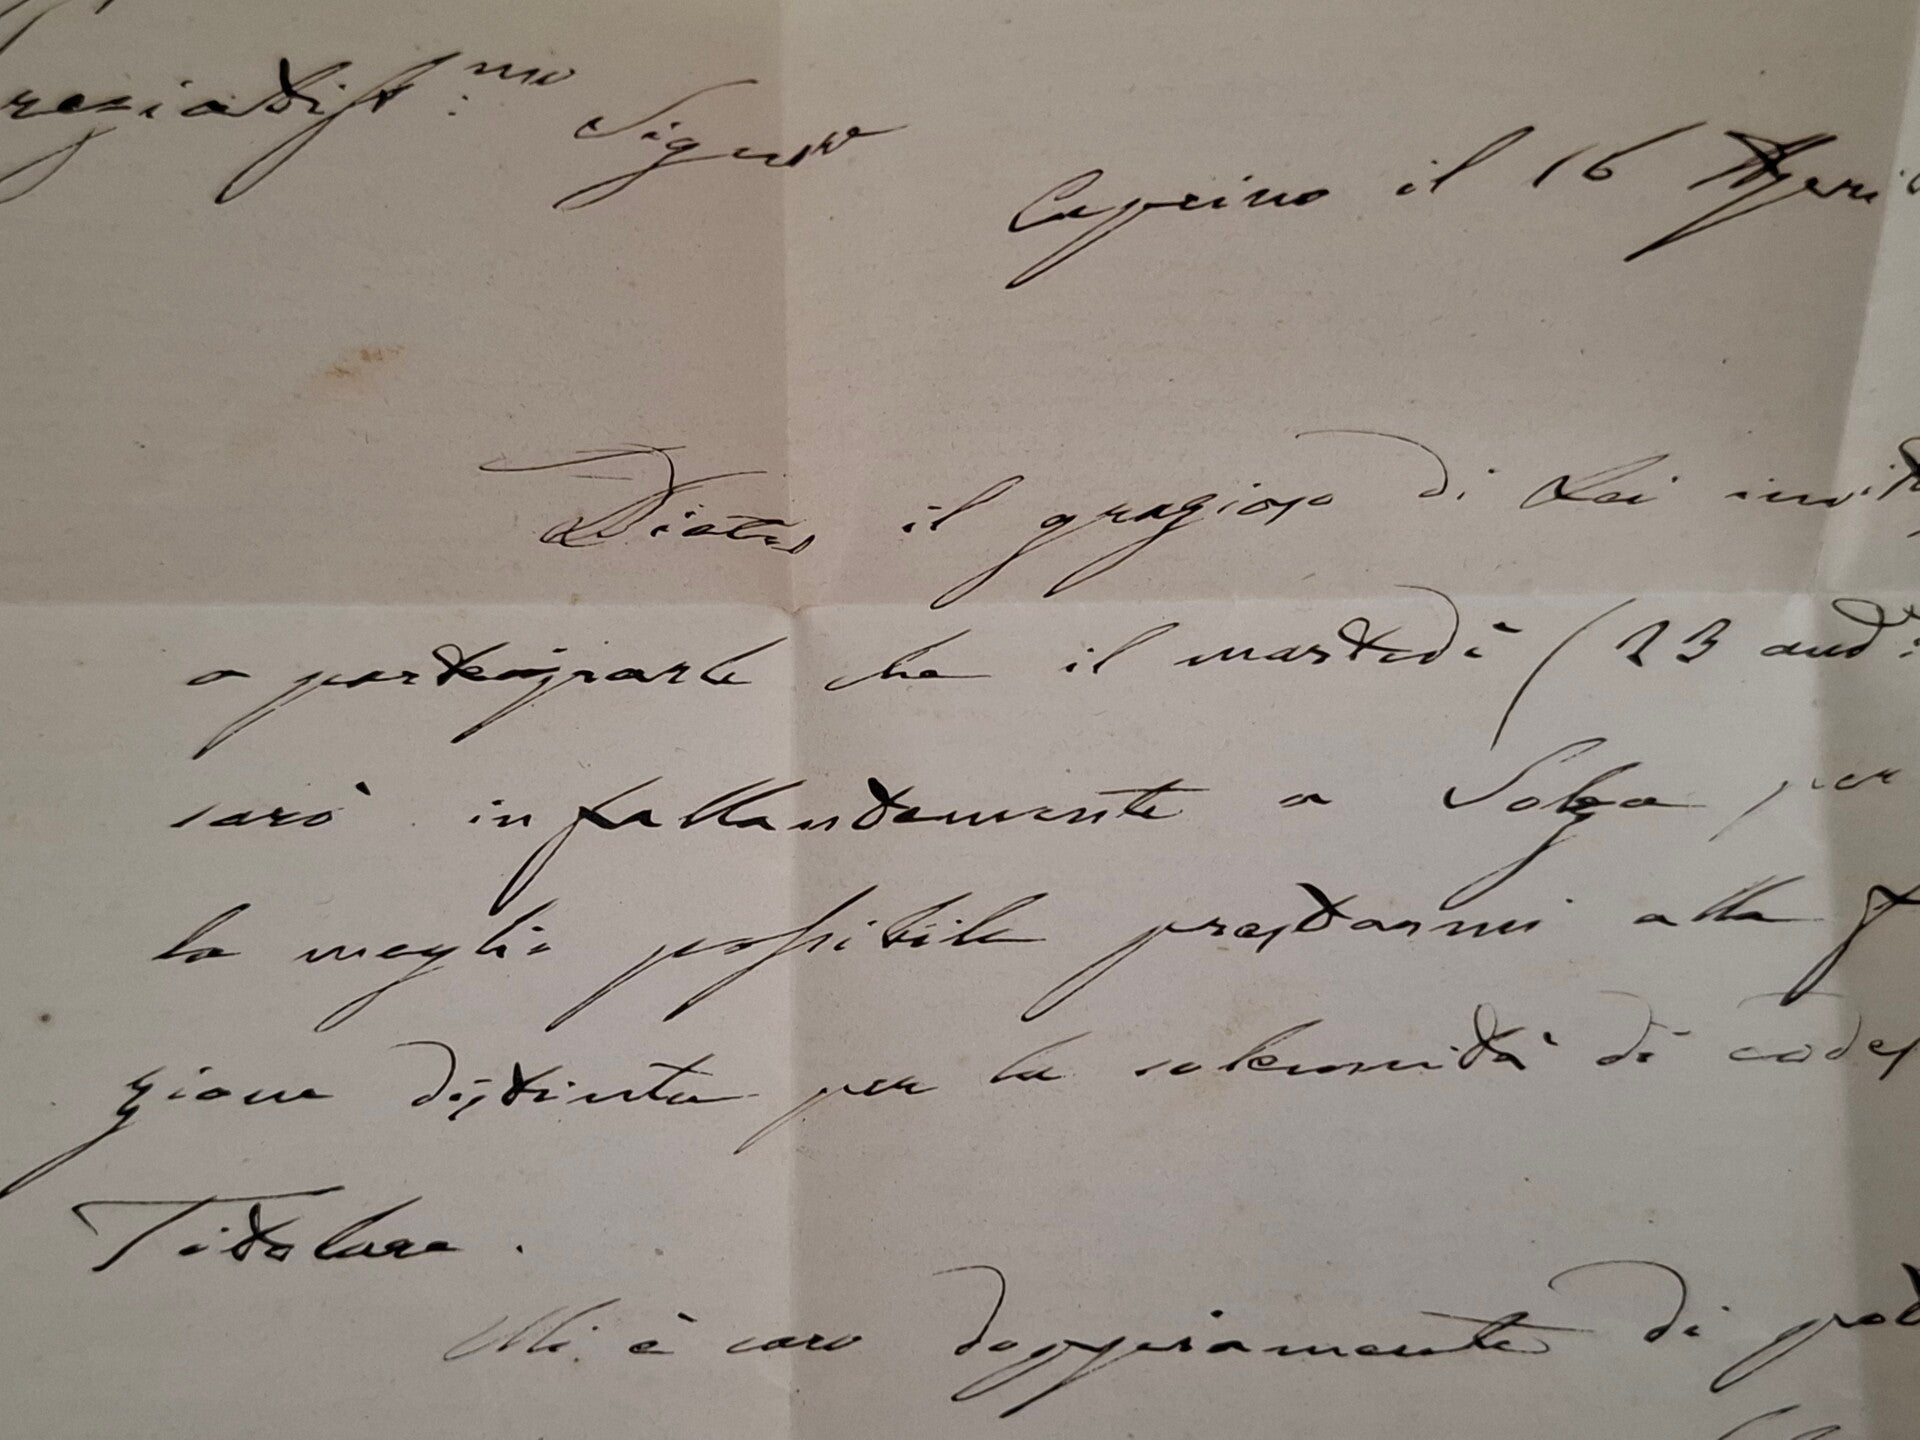 regiatiss.mo Signore
Caprino il 16 April
Dietro il grazioso di Lei invito
a parteciparle che il martedì (23 and.e
sarò infallantemente a Solza per
la meglio possibile prestarmi alla f
zione distinta per la solennità di codes
Titolare.
Mi è caro doppiamente di pot